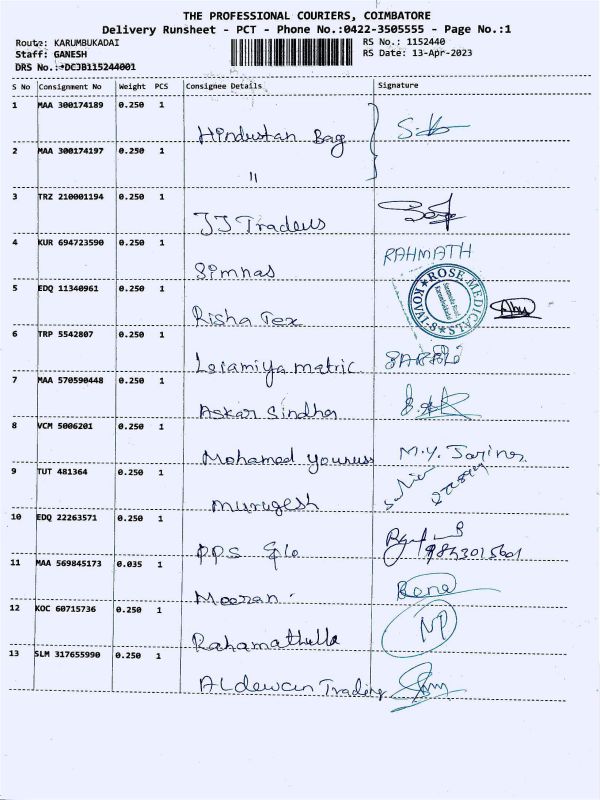 THE PROFESSIONAL COURIERS, COIMBATORE
Delivery Runsheet - PCT - Phone No.:0422-3505555 - Page No.:1
Route: KARUMBUKADAI RS No.: 1152440
Staff: GANESH RS Date: 13-Apr-2023
DRS No.:*DCJB115244001
S No Consignment No Weight PCS Consignee Details Signature
1 MAA 300174189 0.250 1
Hindustan Bag
2 MAA 300174197 0.250 1
"
3 TRZ 210001194 0.250 1
JJ Traders
4 KUR 694723590 0.250 1 RAHMATH
Simnas
5 EDQ 11340961 0.250 1 ROSE MEDICALS KOVAI-8
Risha Tex
6 TRP 5542807 0.250 1
matric
7 MAA 570590448 0.250 1
Askar Sindhu
8 VCM 5006201 0.250 1
Mohamed Younuss M.Y. Jarines
9 TUT 481364 0.250 1
Murugesh
10 EDQ 22263571 0.250 1
PPS 9843015601
11 MAA 569845173 0.035 1
Meeran
12 KOC 60715736 0.250 1 NP
Rahamathulla
13 SLM 317655990 0.250 1
Aldewan Trading